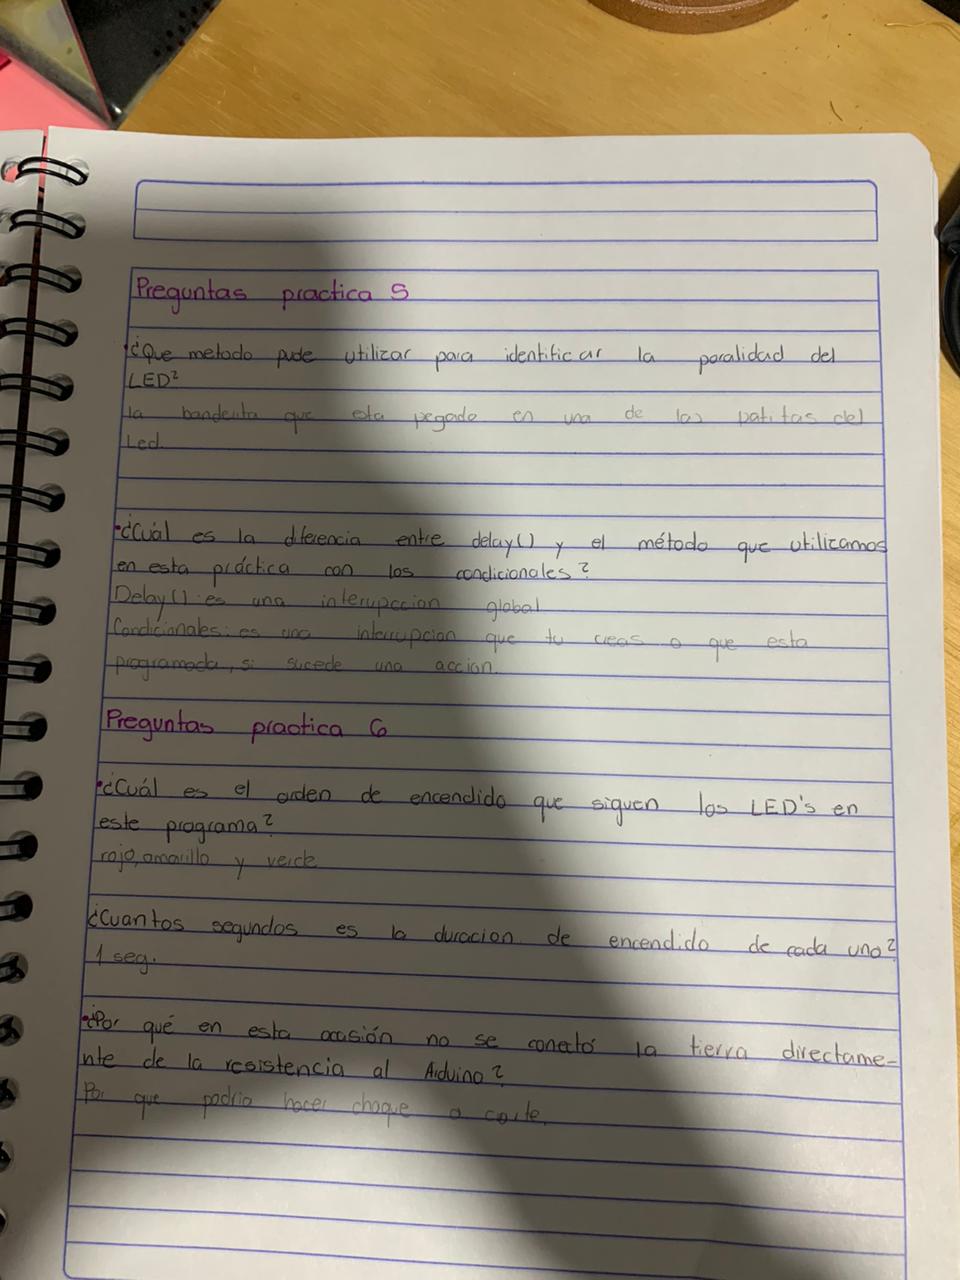 Preguntas practica 5
¿Que metodo pude utilizar para identificar la poralidad del
LED?
La banderita que esta pegado en una de las patitas del
Led.
•¿Cuál es la diferencia entre delay() y el método que utilizamos
en esta práctica con los condicionales?
Delay(): es una interupccion global
Condicionales: es una interrupcion que tu creas o que esta
programada, si sucede una accion.
Preguntas practica 6
•¿Cuál es el orden de encendido que siguen los LED's en
este programa?
rojo, amarillo y verde
¿Cuantos segundos es la duracion de encendido de cada uno?
1 seg.
•¿Por qué en esta ocasión no se conectó la tierra directame-
nte de la resistencia al Arduino?
Por que podria hacer choque o corte.